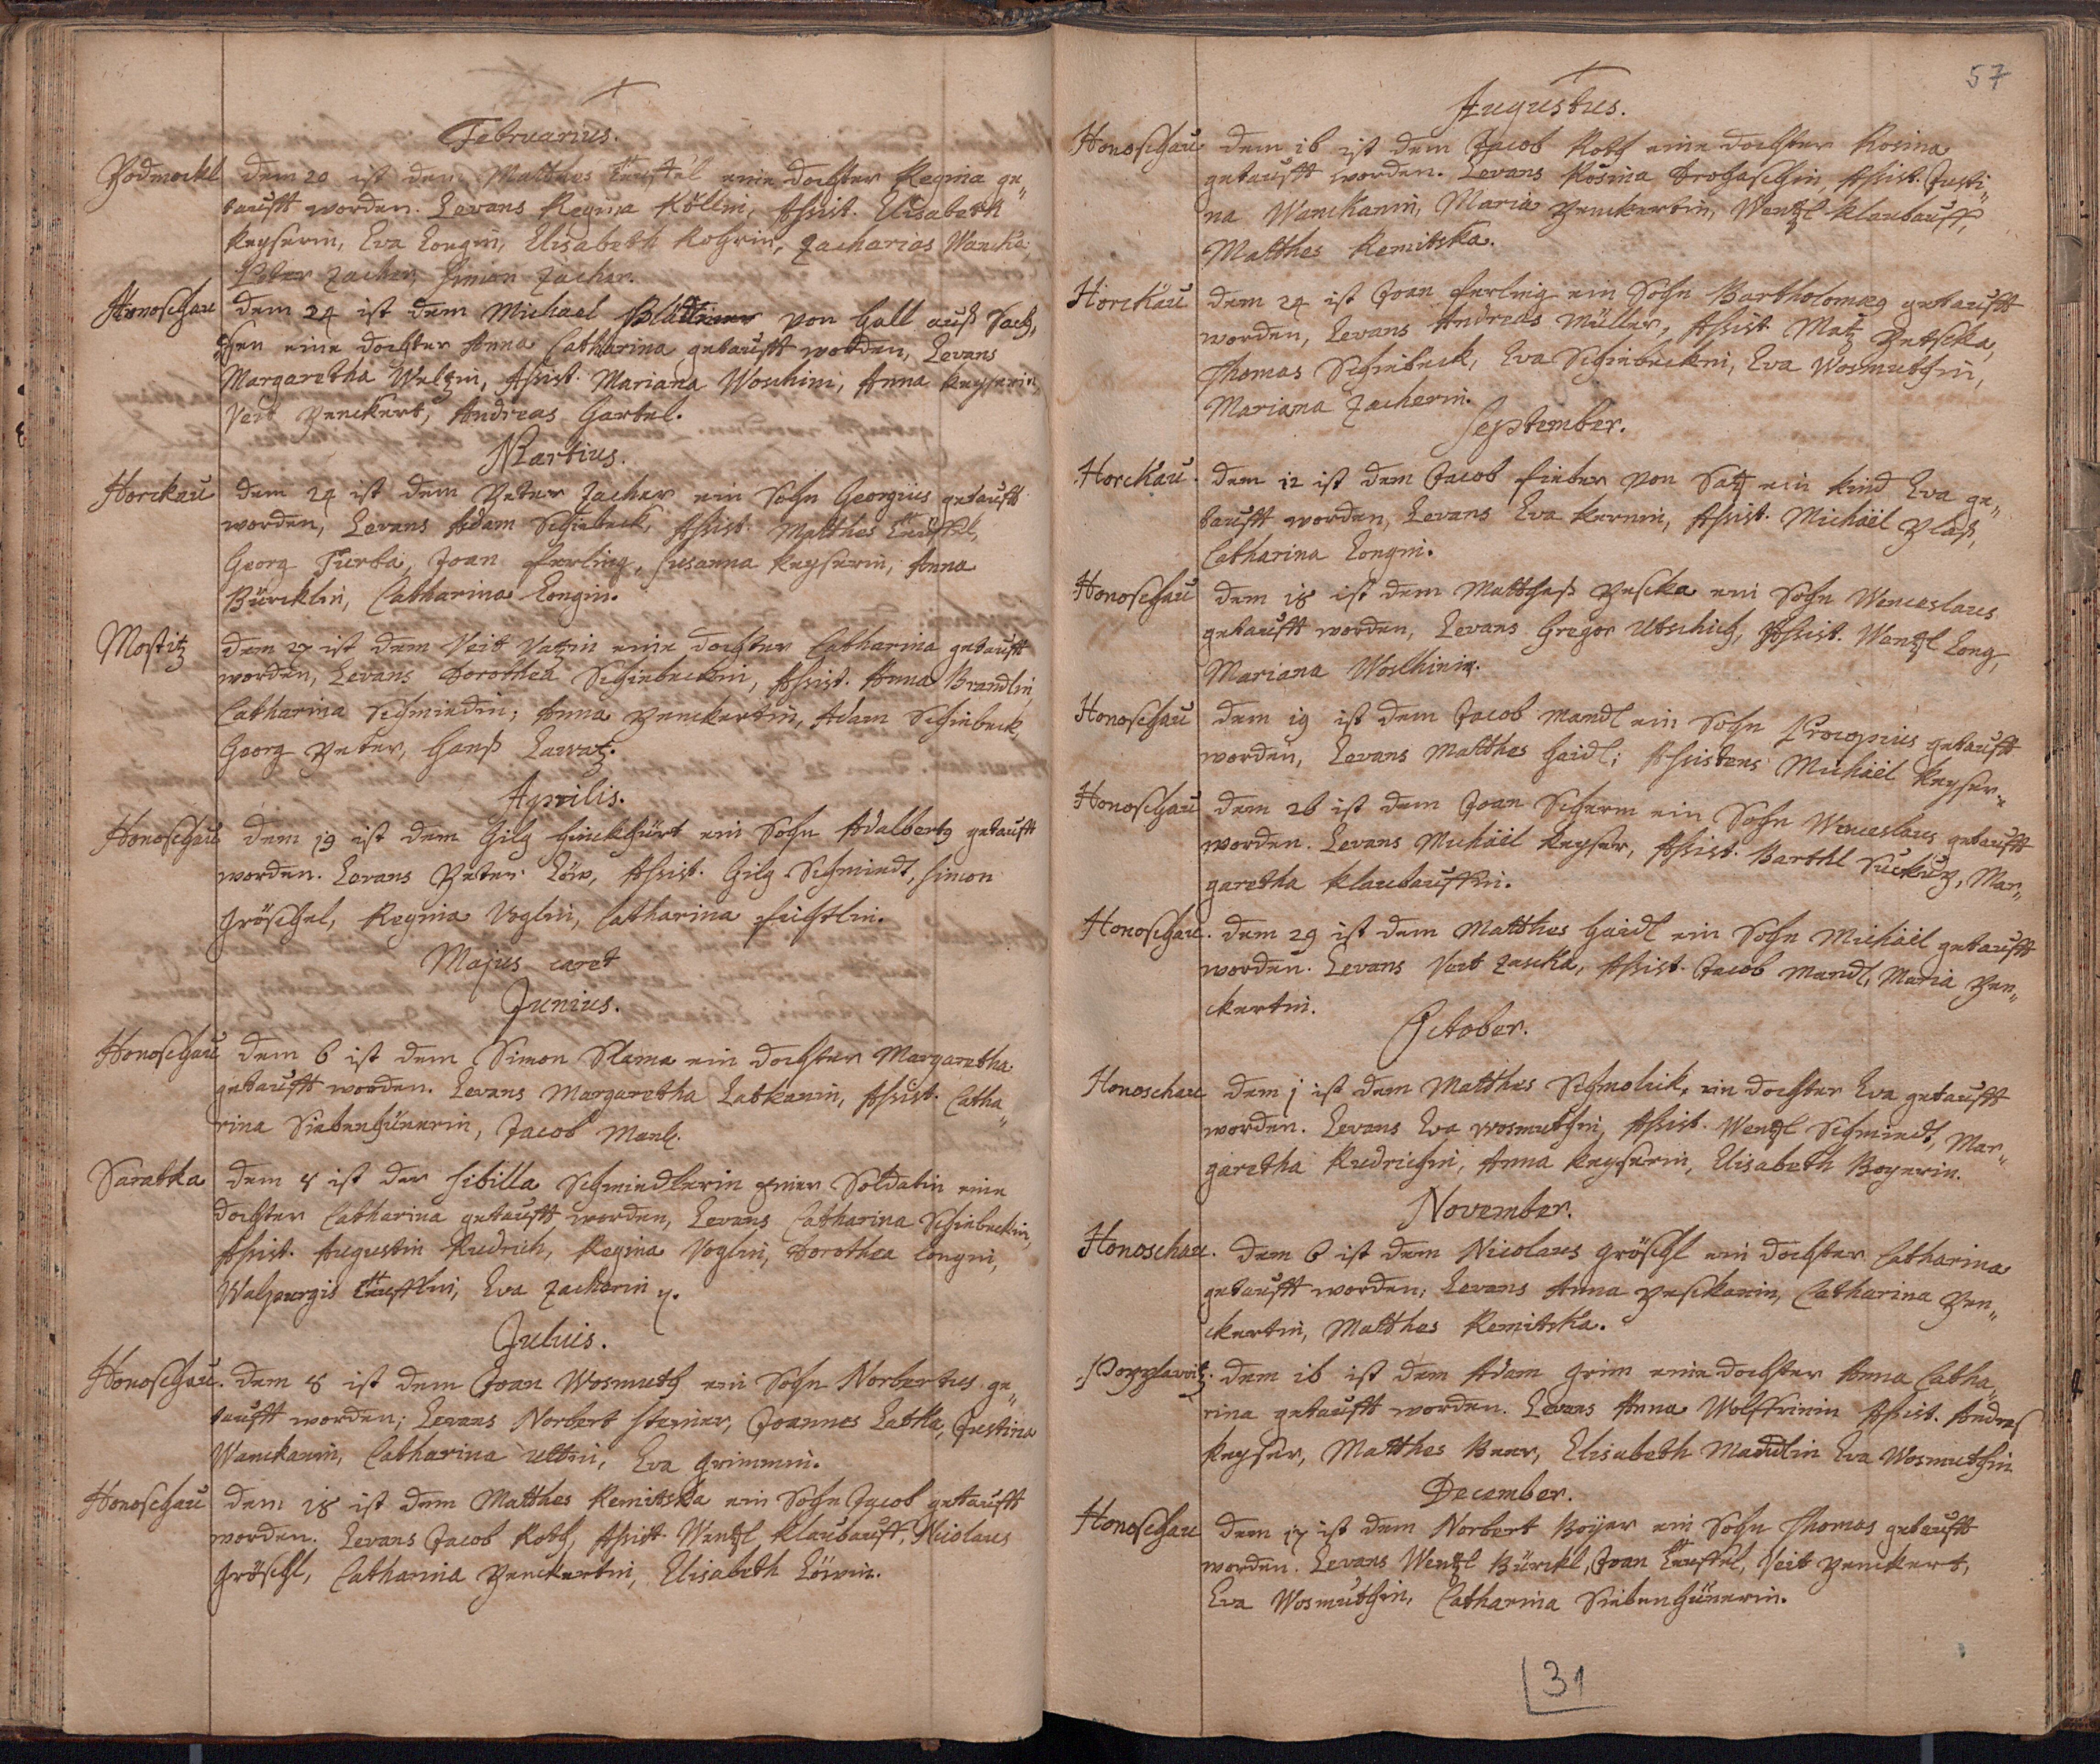 Februarius.
Podmockl dem 20 ist dem Matthes Teuffel eine dochter Regina ge„
taufft worden. Levans Regina Köllin, Assist. Elisabeth
Keyserin, Eva Longin, Elisabeth Rohrin, Zacharias Wancka,
Peter Zacher, Simon Zacher.
Honoschau dem 24 ist dem Michael von Hall auß Sach„
sen eine dochter Anna Catharina getaufft worden, Levans
Margaretha Weltzin, Assist. Mariana Woschini, Anna Keyserin,
Veit Penckert, Andreas Hartel.
Martius.
Horckau dem 24 ist dem Peter Zacher ein Sohn Georgius getaufft
worden, Levans Adam Schiebeck, Assist. Matthes Teuffel,
Georg Furba, Joan Ferling, Susanna Keyserin, Anna
Bürcklin, Catharina Longin.
Mostitz dem 27 ist dem Veit Vatzin eine dochter Catharina getaufft
worden, Levans Dorothea Schiebeckin, Assist. Anna Brandlin,
Catharina Schmiedin, Anna Penckertin, Adam Schiebeck,
Georg Peter, Hanß Lawatz.
Aprilis.
Honoschau dem 19 ist dem Gilg ein Sohn Adalbertg getaufft
worden. Levans Peter Löw, Assist. Gilg Schmiedt, Simon
Gröschel, Regina Voglin, Catharina Feichtlin.
Majus caret
Junius.
Honoschau dem 6 ist dem Simon Slama ein dochter Margaretha
getaufft worden. Levans Margaretha Latkanin, Assist. Catha„
rina Siebenhünerin, Jacob Manl.
Saratka dem 8 ist der Sibilla Schmiedlerin einer Soldatin eine
dochter Catharina getaufft worden, Levans Catharina Schiebeckin,
Assist. Augustin Rudrich, Regina Voglin, Dorothea Longin,
Walpurgis Teufflin, Eva Zacherin
Julius.
Honoschau. dem 8 ist dem Joan Wosmuth ein Sohn Norbertus ge„
taufft worden; Levans Norbert Steiner, Joannes Latka, Justina
Wanckanin, Catharina Ultin, Eva Grimmin.
Honoschau dem 18 ist dem Matthes Remitska ein Sohn Jacob getaufft
worden. Levans Jacob Roth, Assist. Wentzl Klaubauff, Nicolaus
Gröschl, Catharina Penckertin, Elisabeth Löwin.
57
Augustus.
Honoschau dem 16 ist dem Jacob Roth eine dochter Rosina
getaufft worden. Levans Rosina Prohaschin, Assist. Justi„
na Wanckanin, Maria Penckertin, Wentzl Klaubauff,
Matthes Remitska.
Horckau dem 24 ist Joan Ferling ein Sohn Bartholomæg getaufft
worden, Levans Andreas Müller, Assist. Matz Petscka,
Thomas Schiebeck, Eva Schiebeckin, Eva Wosmuthin,
Mariana Zacherin.
September.
Horckau. dem 12 ist dem Jacob Fieber von Satz ein kind Eva ge„
taufft worden, Levans Eva Kernin, Assist. Michäel Plaß,
Catharina Longin.
Honoschau dem 18 ist dem Matthess Pescka ein Sohn Wenceslaus
getaufft worden, Levans Gregor Utschick, Assist. Wentzl Long,
Mariana Woschinin.
Honoschau dem 19 ist dem Jacob Mandl ein Sohn Procopius getaufft
worden, Levans Matthes Haidl; Assistens Michäel Keyser.
Honoschau dem 26 ist dem Joan Scherm ein Sohn Wenceslaus getaufft
worden. Levans Michäel Keyser, Assist. Barthl Suckutz, Mar„
garetha Klaubauffin.
Honoschau. dem 29 ist dem Matthes Haidl ein Sohn Michäel getaufft
worden. Levans Veit Zascka, Assist. Jacob Mandl, Maria Pen„
ckertin.
October.
Honoschau dem j ist dem Matthes Schmolick, ein dochter Eva getaufft
worden. Levans Eva Wosmuthin, Assist. Wentzl Schmiedt, Mar„
garetha Rudrichin, Anna Keyserin, Elisabeth Boyerin.
November.
Honoschau. dem 6 ist dem Nicolaus Gröschl ein dochter Catharina
getaufft worden; Levans Anna Peschkanin, Catharina Pen„
ckertin, Matthes Remitska.
Popplawitz. dem 16 ist dem Adam Grim eine dochter Anna Catha„
rina getaufft worden. Levans Anna Wolffrinin Assist. Andres
Keyser, Matthes Beer, Elisabeth Mandlin Eva Wosmuthin
December.
Honoschau dem 17 ist dem Norbert Boyer ein Sohn Thomas getaufft
worden. Levans Wentzl Bürckl, Joan Teuffel, Veit Penckert,
Eva Wosmuthin, Catharina Siebenhünerin.
31